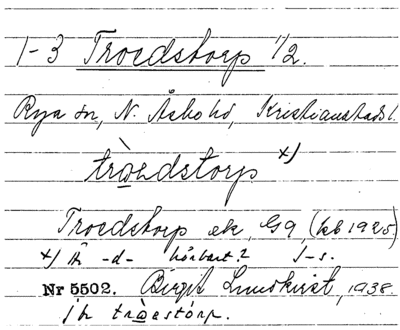 1-3 Troedstorp 1/2.
Rya sn, N. Åsbo hd, Kristianstads l.
tròƨdstorp x)
Troedstorp ek, G9, (kb 1925)
x) It -d- hörbart? J-s.
Nr 5502. Birgit Lundkvist, 1938.
tròestòrp.